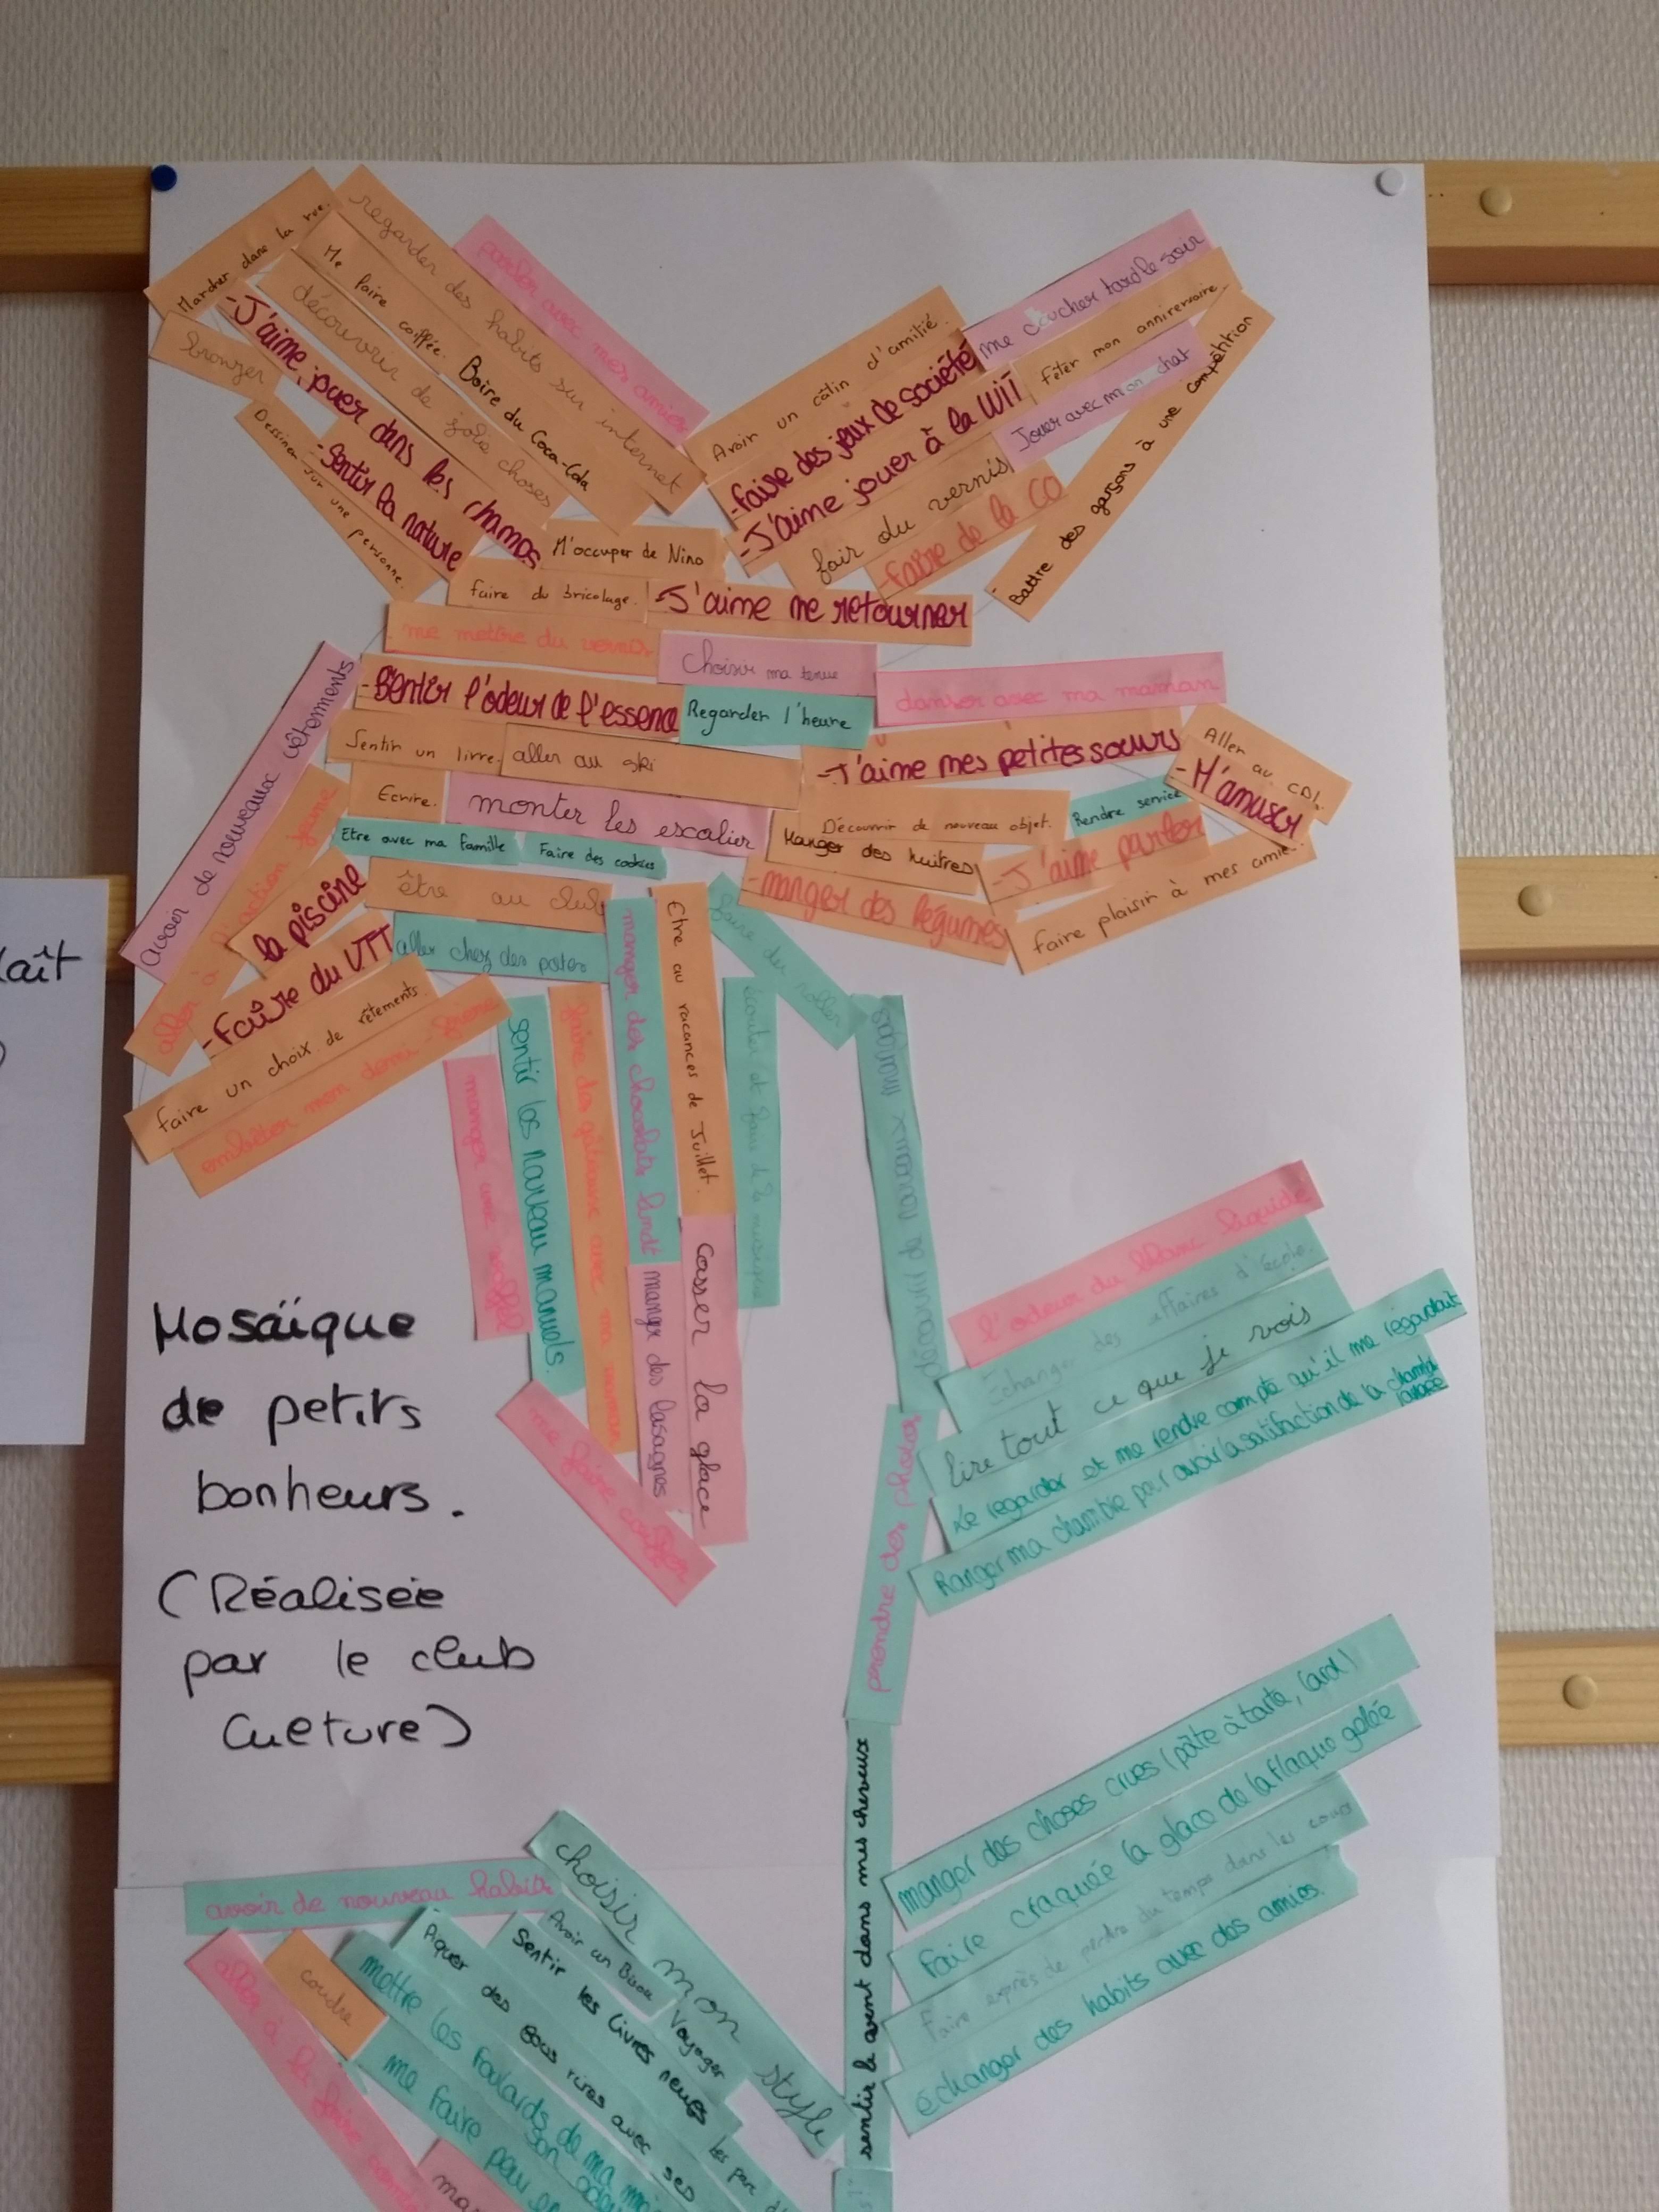 Marcher dans la rue.
regarder des habits sur internet
parler avec mes amies
Me faire coiffée.
Boire du Coca-Cola
découvrir de jolie choses
-J'aime jouer dans les champs
bronzer
-Sentir la nature
Dessiner sur une personne.
Avoir un câlin d'amitié.
-faire des jeux de société
-J'aime jouer à la WII
me coucher tard le soir
Fêter mon anniversaire.
Jouer avec mon chat
Battre des garçons à une compétition
fair du vernis
-faire de la CO
M'occuper de Nino
faire du bricolage.
-J'aime me retourner
me mettre du vernis
Choisir ma tenue
-Sentir l'odeur de l'essence
Regarder l'heure
danser avec ma maman
Sentir un livre.
aller au ski
-J'aime mes petites sœurs
Aller au CDI.
-M'amuser
Ecrire.
monter les escalier
Découvrir de nouveau objet.
Rendre service
Etre avec ma famille
Faire des cookies
Manger des huitres
-J'aime parler
faire plaisir à mes amies.
-manger des légumes
avoir de nouveaux vêtements
aller à action jeune
la piscine
-Faire du VTT
Faire un choix de vêtements.
embêter mon demi-frère
être au club
aller chez des potes
manger des chocolats lindt
Etre au vacances de Juillet.
faire du roller
écouter et faire de la musique
sentir les nouveau manuels
manger des lasagnes
casser la glace
me faire coiffer
découvrir de nouveaux mangas
prendre des photos
sentir le vent dans mes cheveux
l'odeur du blanc liquide
Échanger des affaires d'école.
lire tout ce que je vois
Le regarder et me rendre compte qu'il me regardait
Ranger ma chambre pour avoir la satisfaction de la chambre rangée
Mosaïque
de petits
bonheurs.
(Réalisée
par le club
Culture)
manger des choses crues (pâte à tarte, lard)
Faire craquée la glace de la flaque gelée
Faire exprès de perdre du temps dans les cours
échanger des habits avec des amies.
avoir de nouveau habits
choisir mon style
Avoir un Bisou
Voyager
Sentir les livres neufs
Piquer des fous rires avec ses
mettre les foulards de ma
son odeur
me faire peur en
coudre
aller à la foire